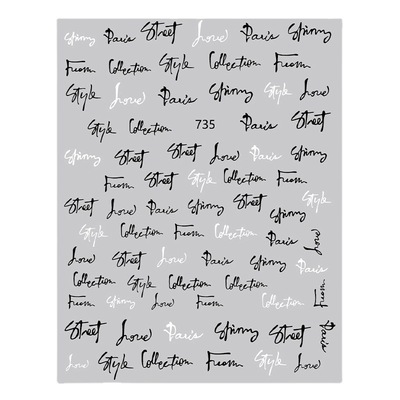 Spinny Paris Street Love Paris Spinny
From Collection. Style From Collection.
Style Love Paris Spinny Style Love
Style Collection. 735 Paris Street
Spinny Street Street Love Spinny Street
Style From. Style Collection. From.
Street Love Paris Spinny Street Spinny
Style Collection From Collection Paris Love
Love Street Spinny Love Paris Spinny
Collection Style Collection. Style Collection. From.
From Spinny Love From Collection
Street Love Paris Spinny Street Paris
Love Style Collection. From Style Love